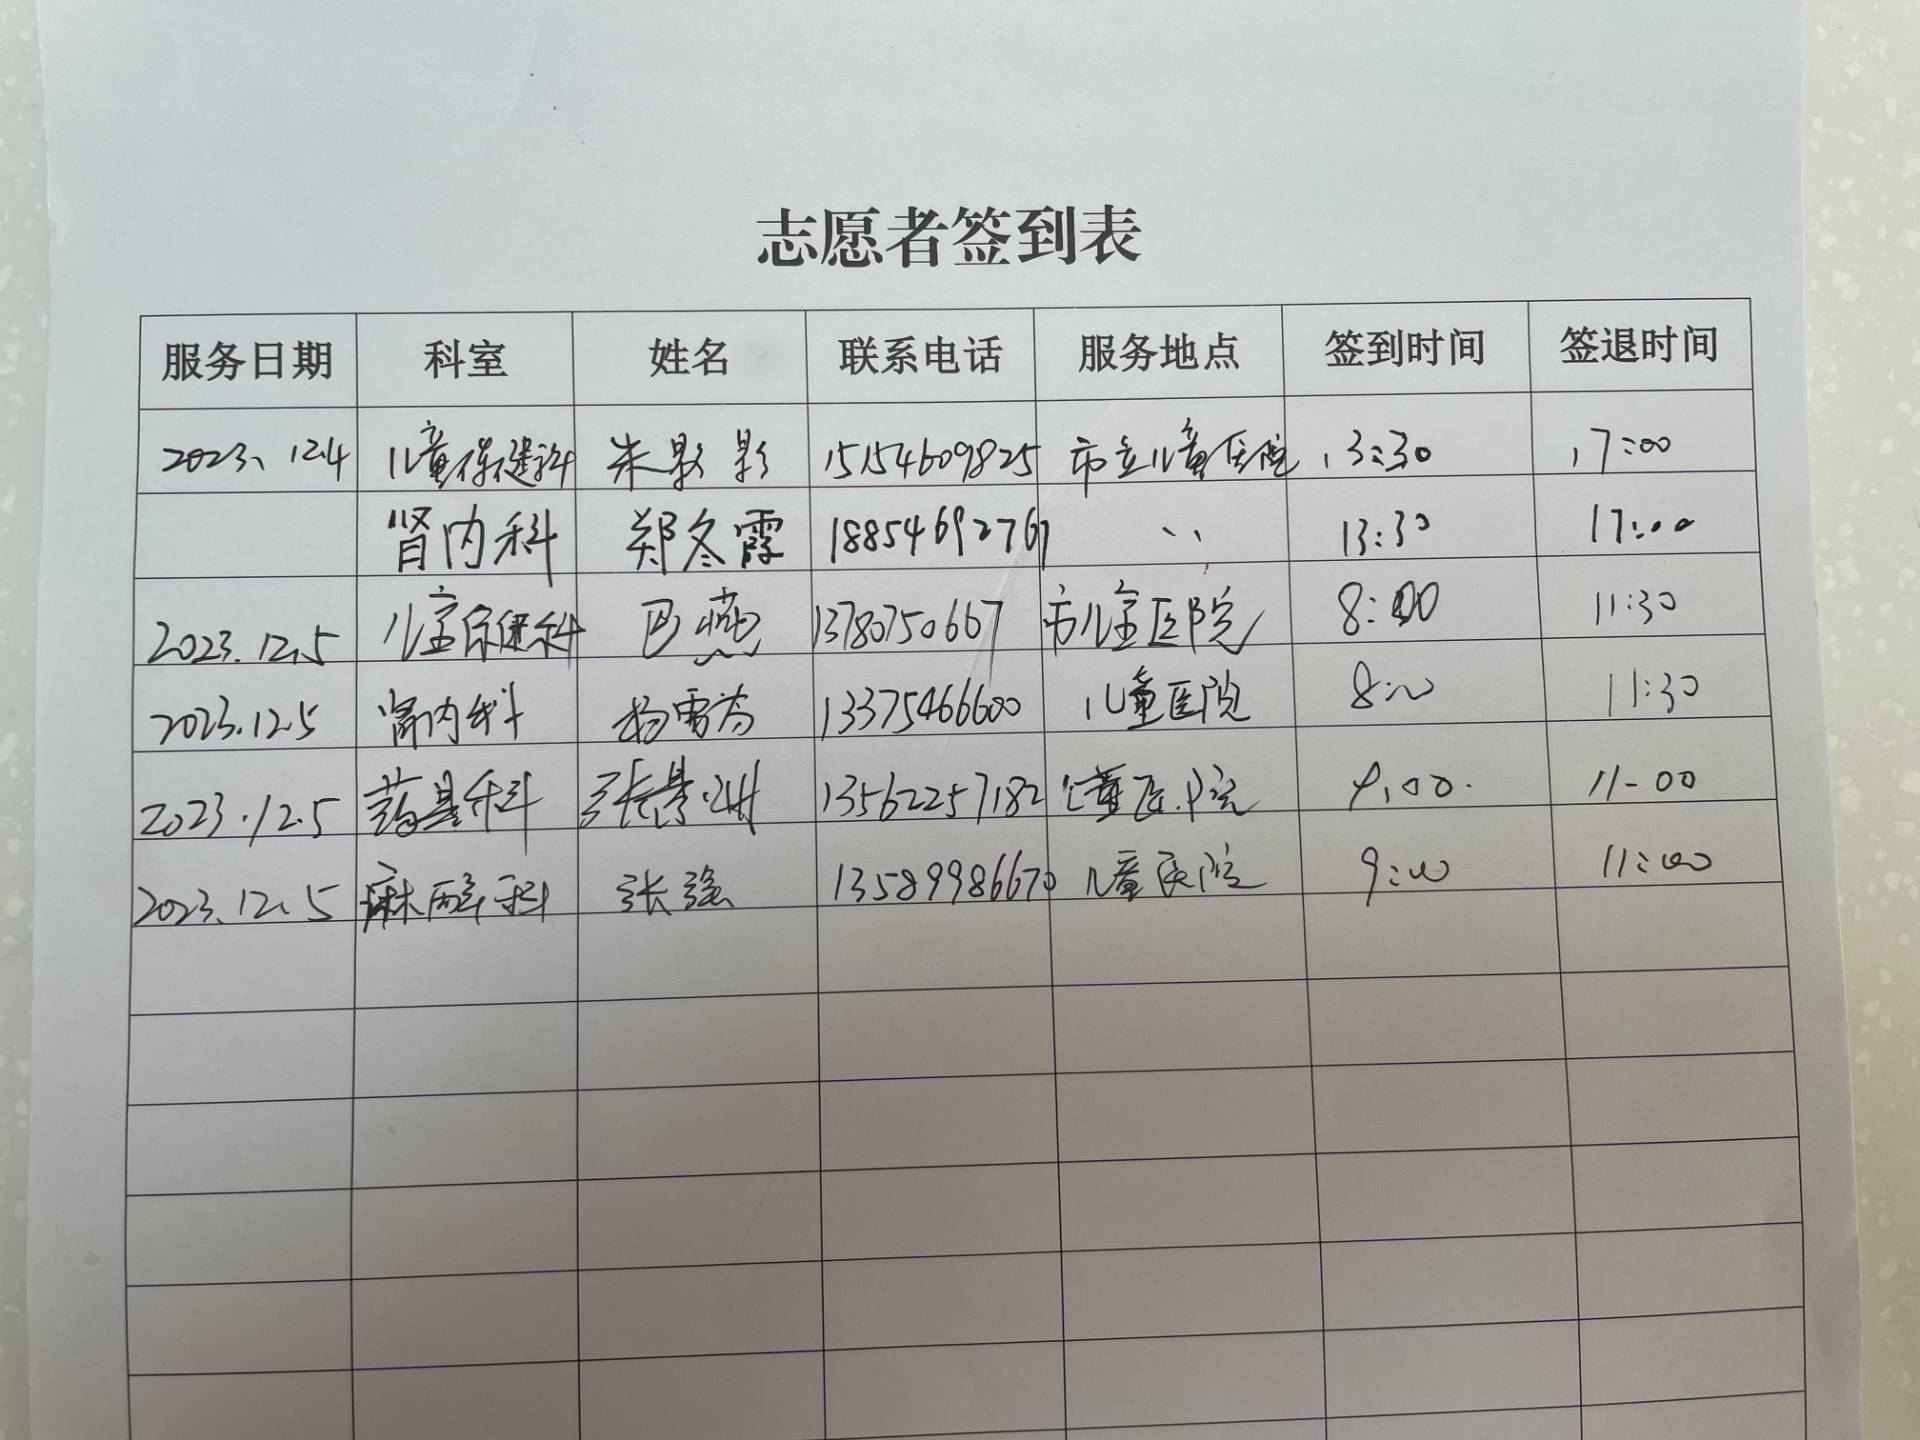 志愿者签到表
服务日期 科室 姓名 联系电话 服务地点 签到时间 签退时间
2023、12.4 儿童保健科 朱影影 15154609825 市立儿童医院 13:30 17:00
肾内科 郑冬霞 18854692767 、、 13:30 17:00
2023.12.5 儿童保健科 巴燕 13780750667 市儿童医院 8:00 11:30
2023.12.5 肾内科 杨雪 13375466600 儿童医院 8:00 11:30
2023.12.5 科 张 13562257182 儿童医院 9:00. 11-00
2023.12.5 麻醉科 张强 13589986670 儿童医院 9:00 11:00